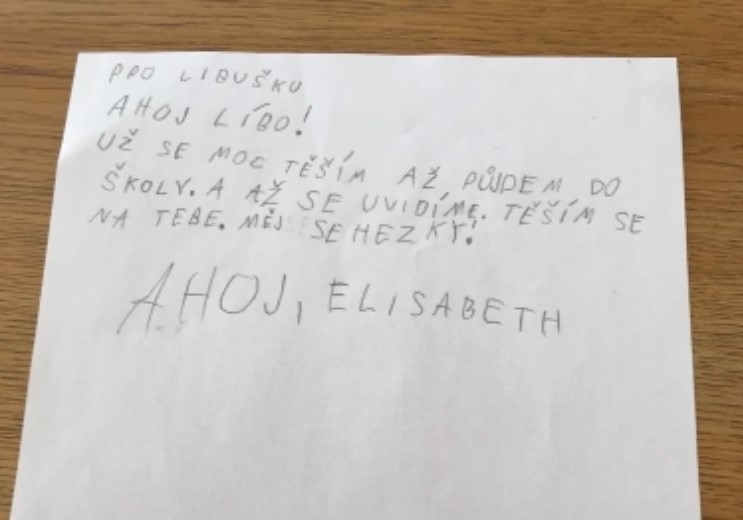 PRO LIBUŠKU
AHOJ LÍBO!
UŽ SE MOC TĚŠÍM AŽ PŮJDEM DO
ŠKOLY. A AŽ SE UVIDÍME. TĚŠÍM SE
NA TEBE. MĚJ SE HEZKY!
AHOJ, ELISABETH